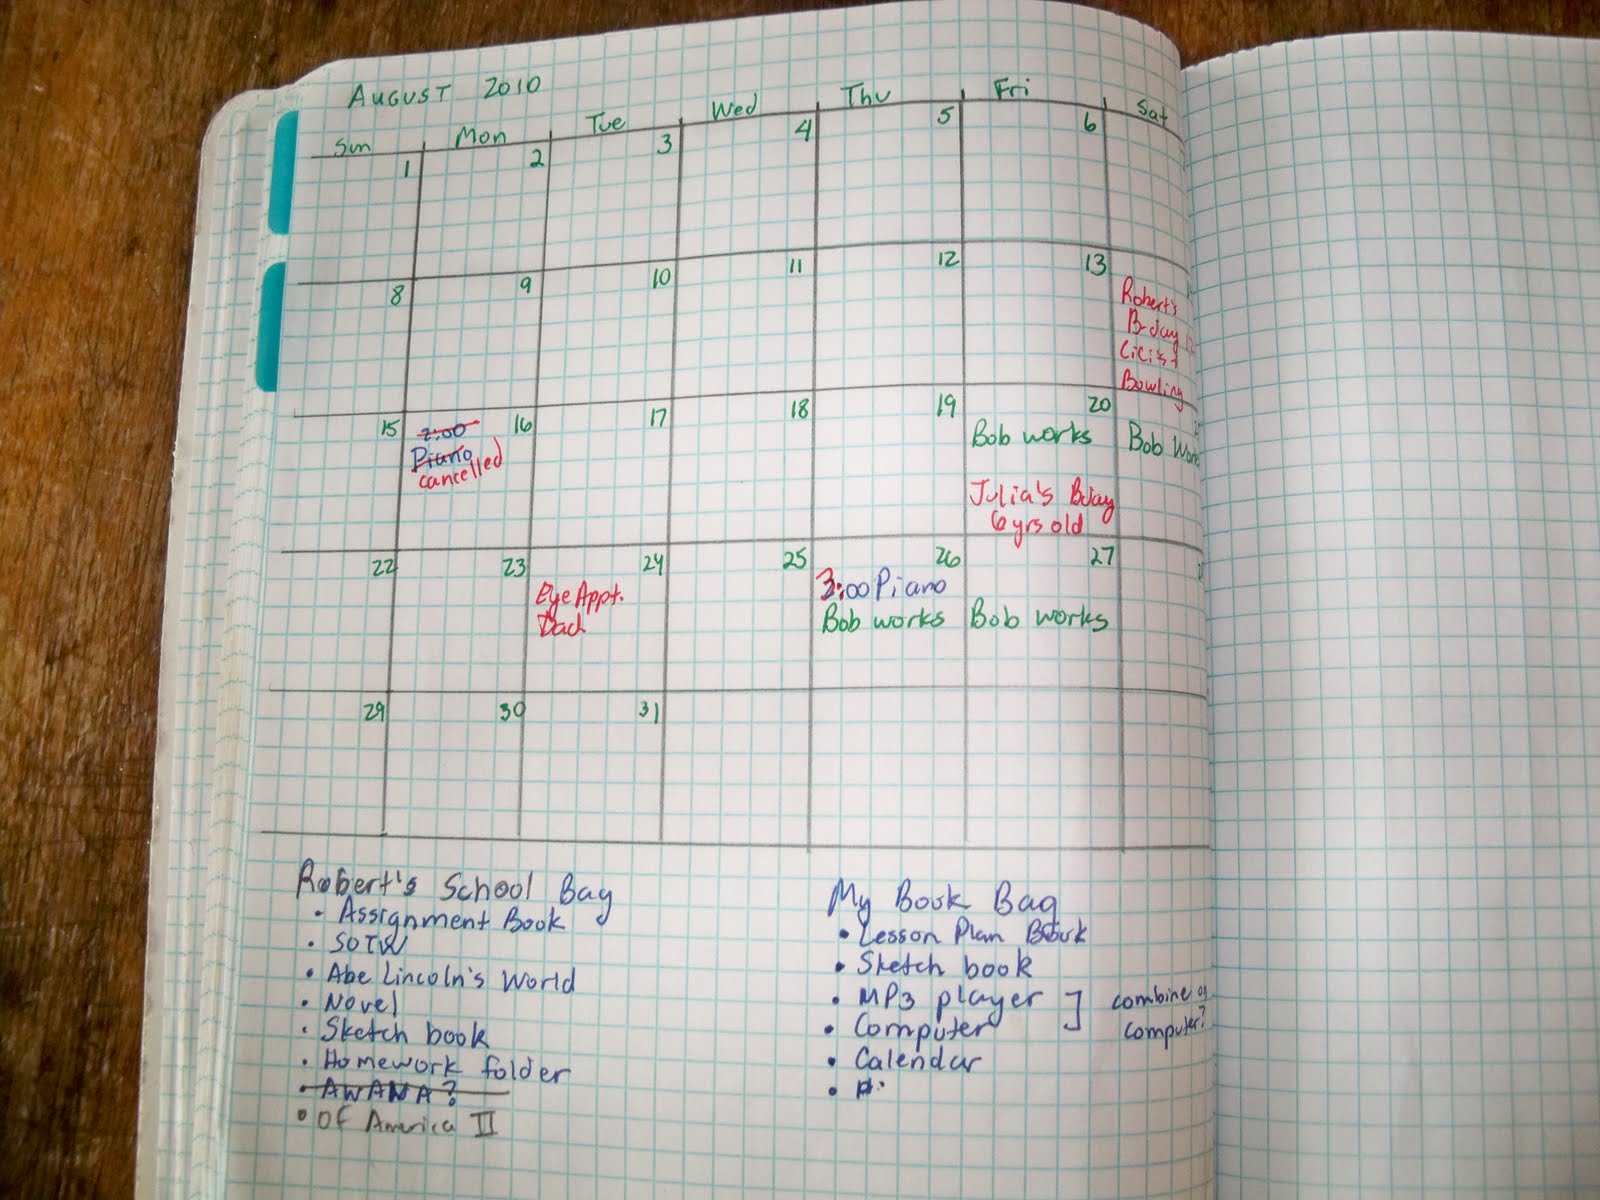 AUGUST 2010
Sun Mon Tue Wed Thu Fri Sat
1 2 3 4 5 6
8 9 10 11 12 13
Robert's
B-day 12
CiCi's +
Bowling
15 16 17 18 19 20
2:00
Piano
cancelled
Bob works
Julia's Bday
6 yrs old
Bob Works
22 23 24 25 26 27
Eye Appt.
Dad
3:00 Piano
Bob works
Bob works
29 30 31
Robert's School Bag
• Assignment Book
• SOTW
• Abe Lincoln's World
• Novel
• Sketch book
• Homework folder
• AWANA?
• Of America II
My Book Bag
• Lesson Plan Book
• Sketch book
• MP3 player
• Computer
] combine on
computer?
• Calendar
•